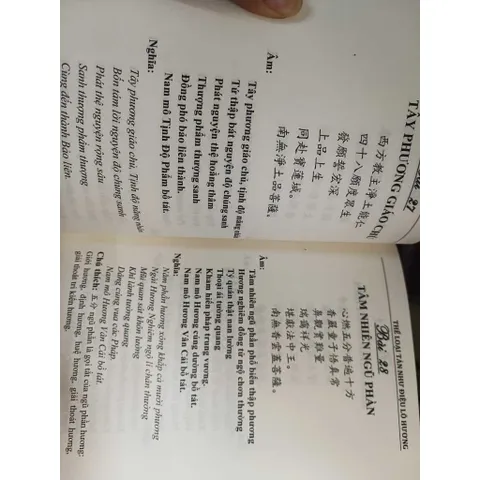 Bài 27
TÂY PHƯƠNG GIÁO CHỦ
西方教主淨土能仁
四十八願度眾生
發願誓宏深
上品上生
同赴寶蓮城。
南無淨土品菩薩。
Âm:
Tây phương giáo chủ, tịnh độ năng nhân
Tứ thập bát nguyện độ chúng sanh
Phát nguyện thệ hoằng thâm
Thượng phẩm thượng sanh
Đồng phó bảo liên thành.
Nam mô Tịnh Độ Phẩm bồ tát.
Nghĩa:
Tây phương giáo chủ Tịnh độ năng nhân
Bốn tám lời nguyện độ chúng sanh
Phát thệ nguyện rộng sâu
Sanh thượng phẩm thượng
Cùng đến thành Bảo liên.
THỂ LOẠI TÁN NHƯ ĐIỆU LÔ HƯƠNG
Bài 28
TÂM NHIÊN NGŨ PHẦN
心然五分普遍十方
香嚴童子悟真常
鼻觀妙難量
瑞靄祥光
堪獻法中王。
南無香雲蓋菩薩。
Âm:
Tâm nhiên ngũ phần phổ biến thập phương
Hương nghiêm đồng tử ngộ chơn thường
Tỷ quán thật nan lường
Thoại ái tường quang
Kham hiến pháp trung vương.
Nam mô Hương cúng dường bồ tát.
Nam mô Hương Vân Cái bồ tát.
Nghĩa:
Năm phần hương xông khắp cả mười phương
Ngài Hương Nghiêm ngộ lí chân thường
Mũi quan sát khôn lường
Khí lành tường quang
Dâng cúng vua các Pháp.
Nam mô Hương Vân Cái bồ tát.
Chú thích: 五分 ngũ phần là gọi tắt của ngũ phần hương:
Giới hương, định hương, huệ hương, giải thoát hương,
giải thoát tri kiến hương.